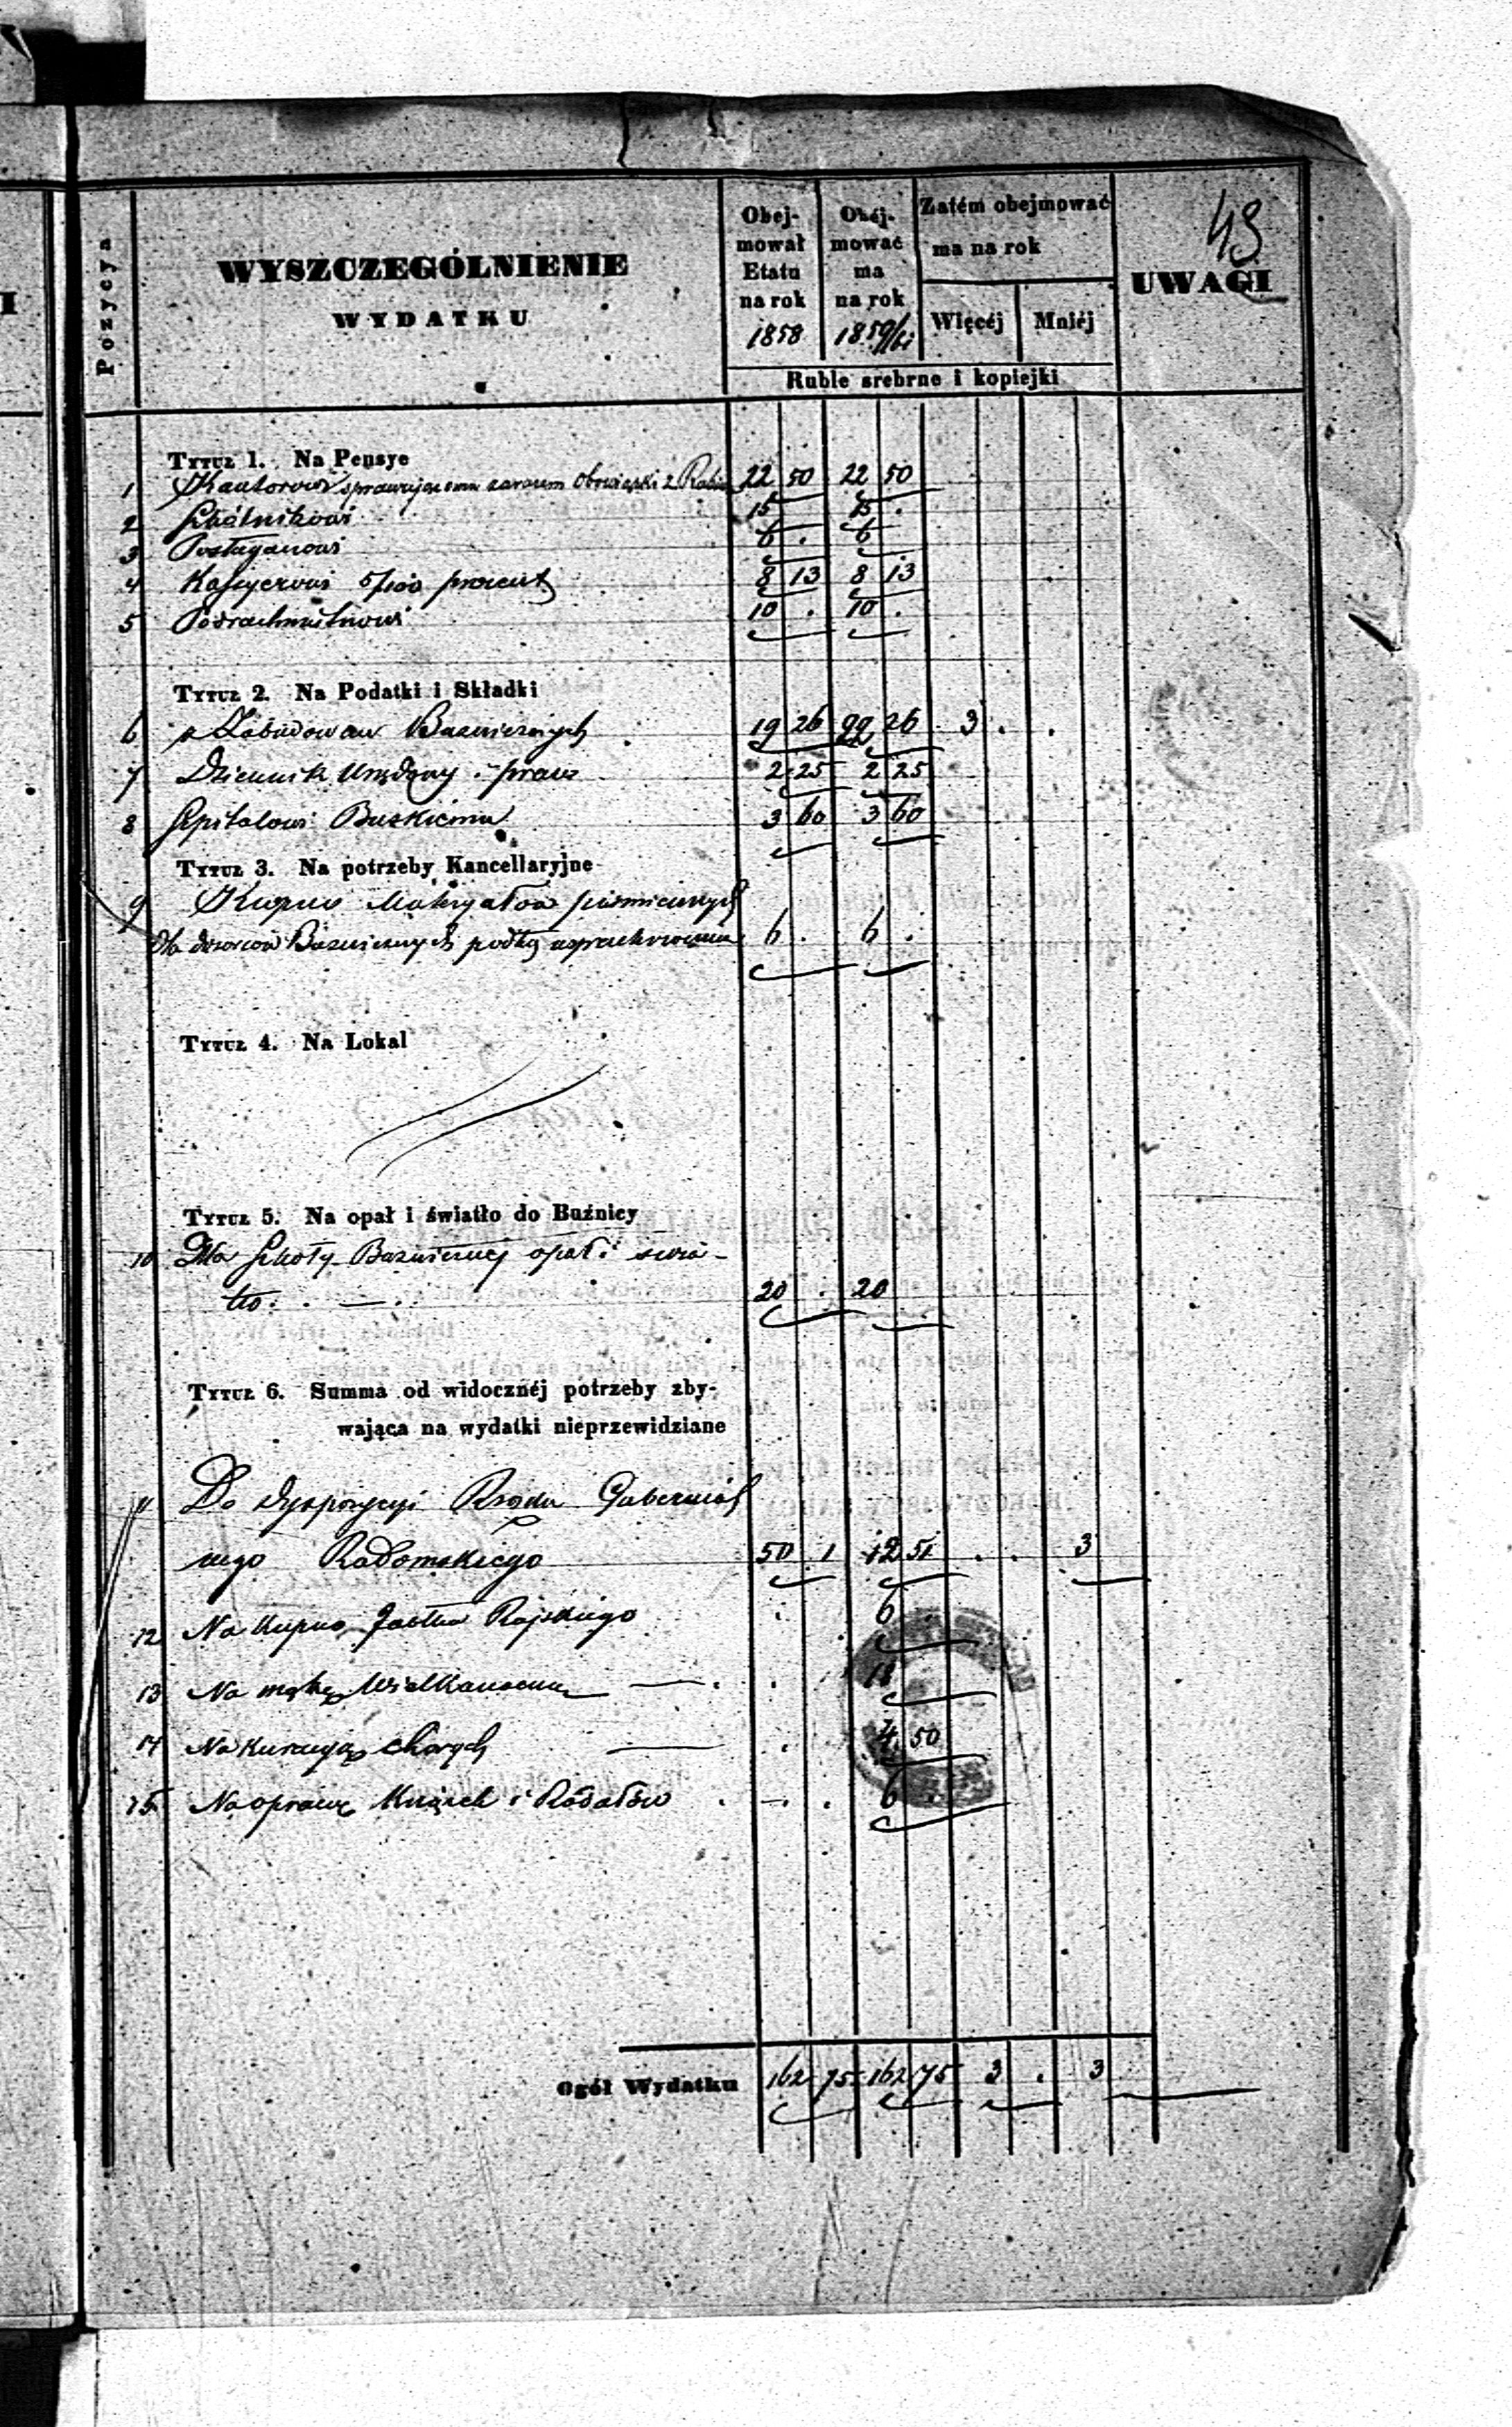 43
Pozycya
WYSZCZEGÓLNIENIE
WYDATKU
Obej-
mował
Etatu
na rok
1858
Obéj-
mować
ma
na rok
1859/61
Zatém obejmować
ma na rok
Więcéj
Mniéj
UWAGI
Ruble srebrne i kopiejki
TYTUŁ 1. Na Pensye
1 Kantorowi sprawującemu zarazem obowiązki 22 50 22 50
2 Szkolnikowi 15 15 .
3 6 . 6
4 Kassyerowi 5/100 procent 8 13 8 13
5 10 . 10 .
TYTUŁ 2. Na Podatki i Składki
6 z Zabudowań Bużniczych 19 26 22 26 3 . .
7 Dziennik Urzędowy i praw 2 25 2 25
8 Szpitalowi Buskiemu 3 60 3 60
TYTUŁ 3. Na potrzeby Kancellaryjne
9 Kupno Materyałów piśmiennych
dla dozorców Bużniczych podług 6 . 6 .
TYTUŁ 4. Na Lokal
TYTUŁ 5. Na opał i światło do Bużnicy
10 Dla Szkoły Bużniczej opał i świa-
tło . — . 20 . 20
TYTUŁ 6. Summa od widocznéj potrzeby zby-
wająca na wydatki nieprzewidziane
11 Do dyspozycyi Rządu Gubernial
nego Radomskiego 50 1 12 51 . . 3
12 Na kupno Jabłka Rajskiego . 6
13 Na mąkę Wielkanocną — . . 18
14 Na kuracyą chorych — . 4 50
15 Na oprawę Książek i Rodałów . — . 6
Ogół Wydatku 162 75 162 75 3 . 3